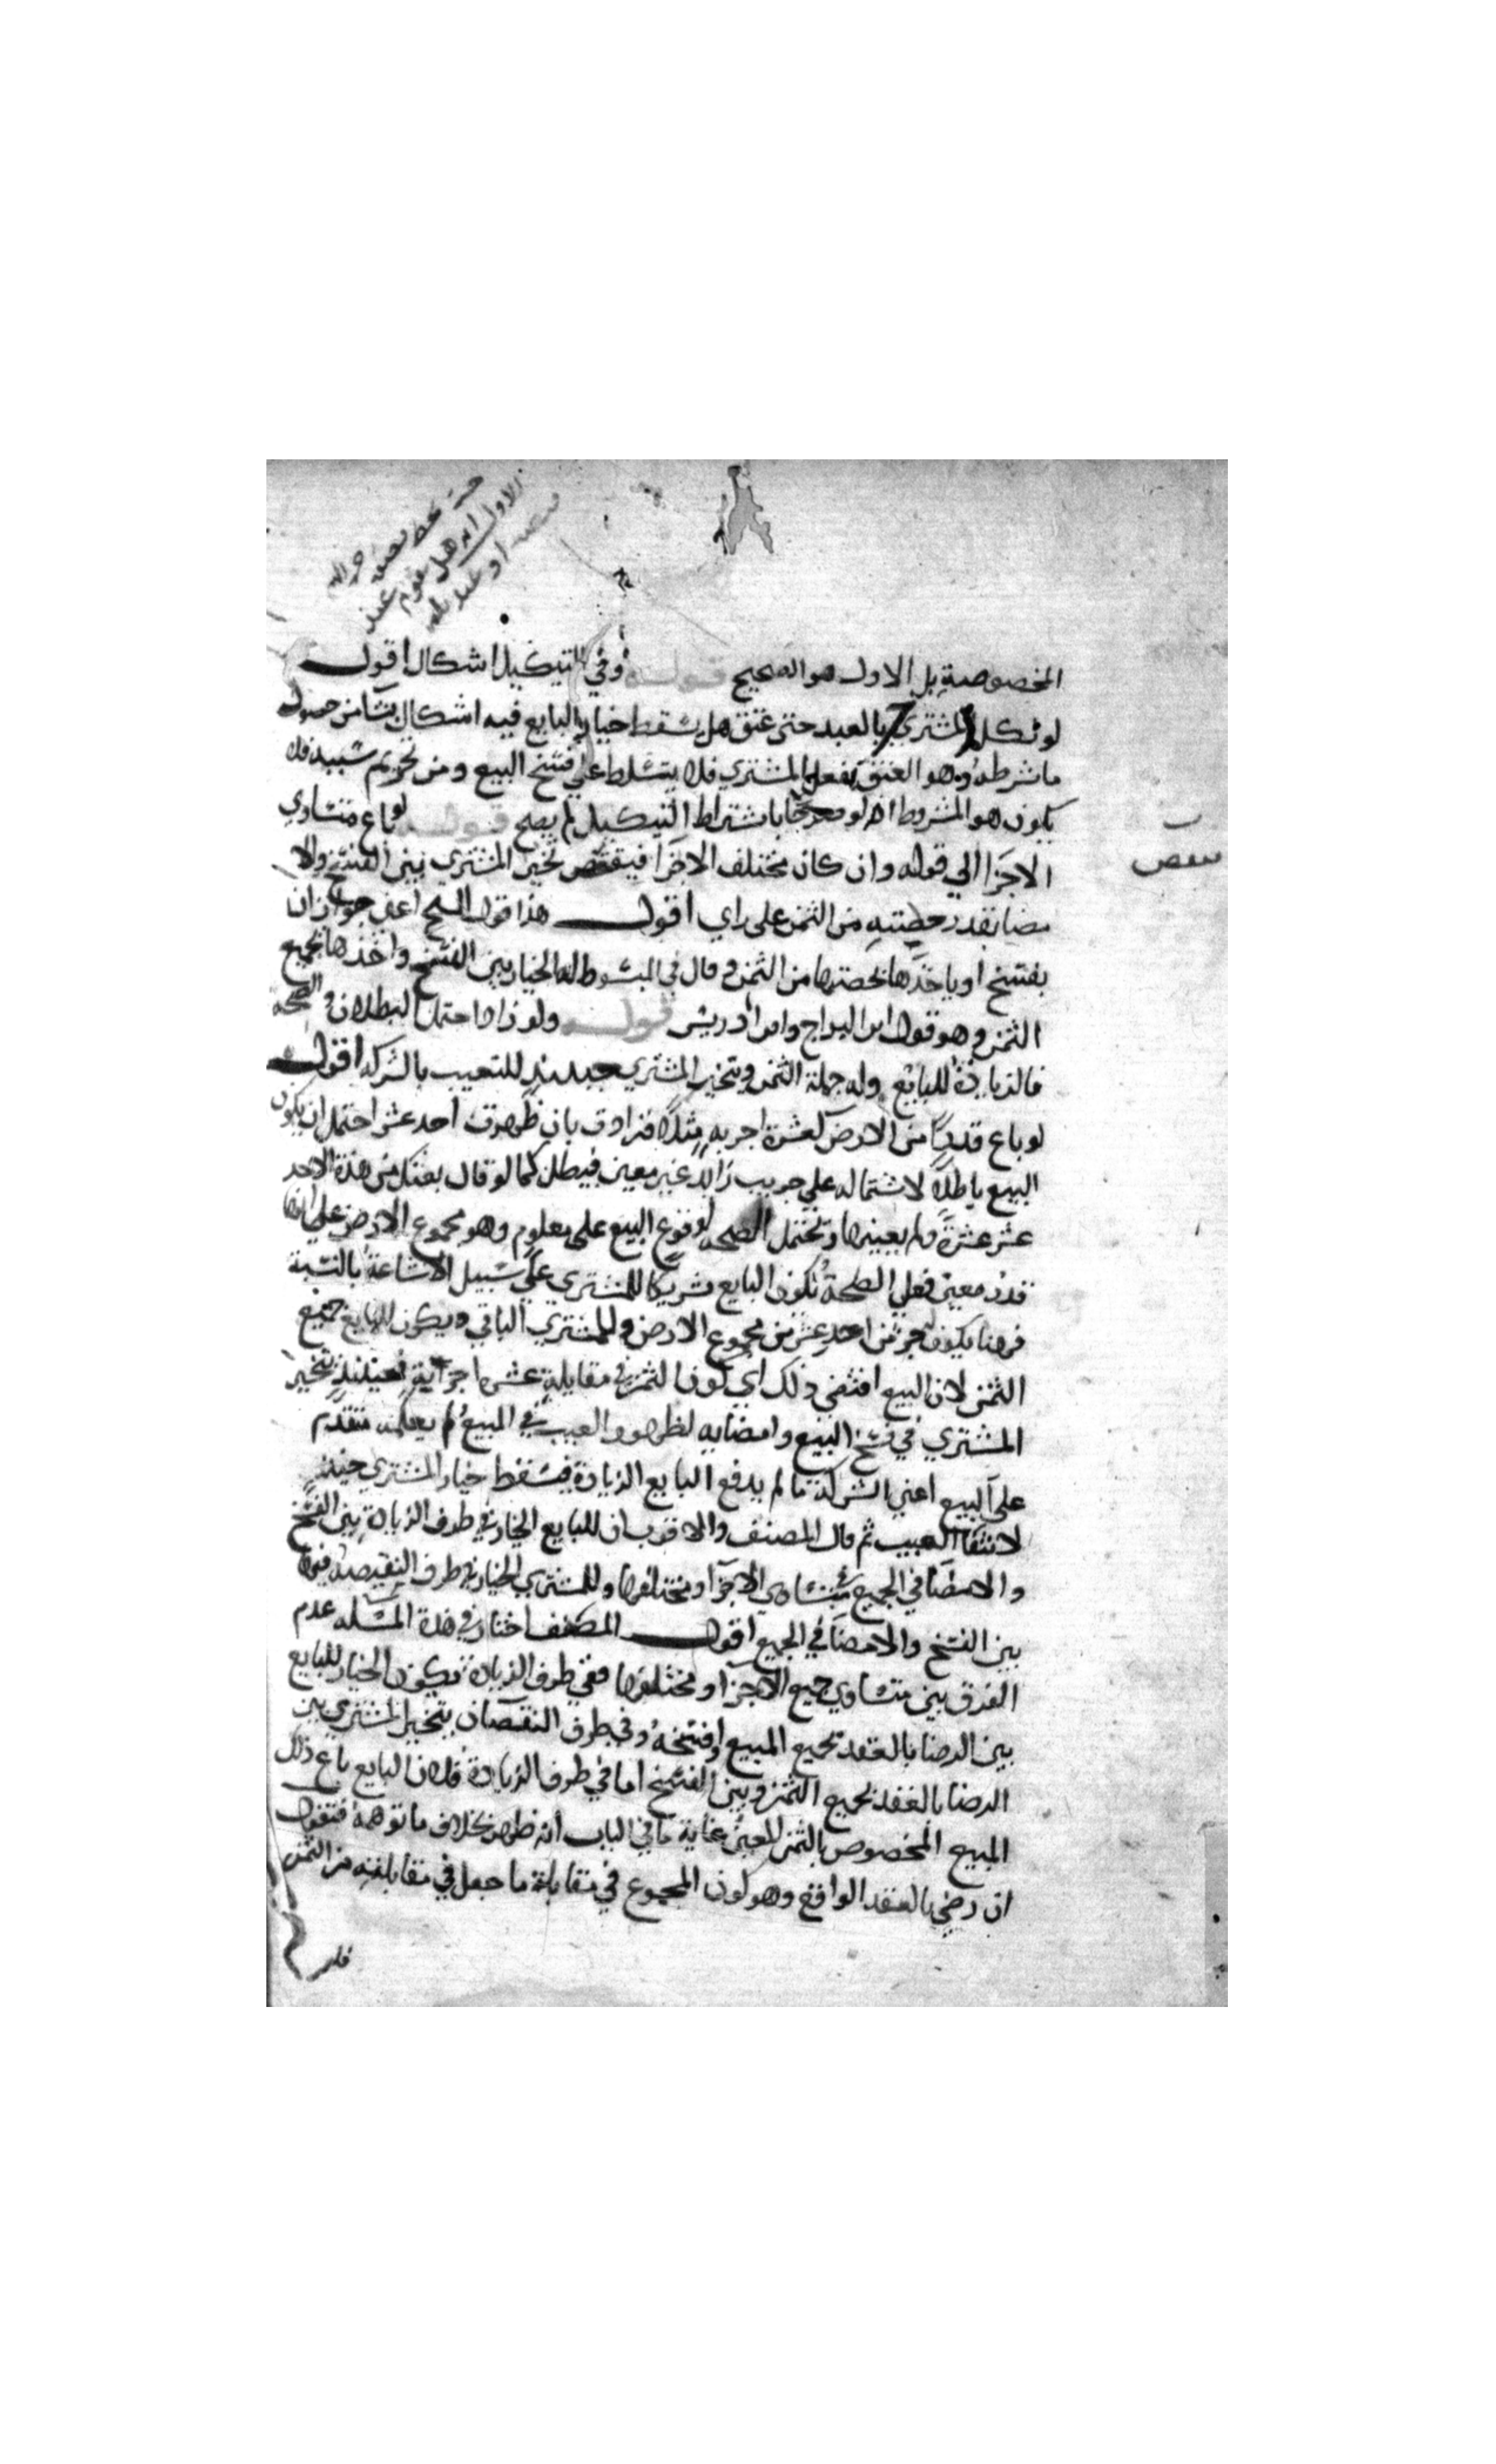 المخصوصة بل الاول هو الصحيح قوله وفي التنكيل اشكال اقول
لو نكل المشتري بالعبد حتى عتق هل يسقط خيار البايع فيه اشكال ينشا من حصول
ما شرطه وهو العتق بفعل المشتري فلا يتسلط على فسخ البيع ومن تحريم سببه فلا
يكون هو المشروط اذ لو صرحا باشتراط التنكيل لم يصح قوله لو باع متساوي
الاجزا الى قوله وان كان مختلف الاجزا فنقص تخير المشتري بين الفسخ والا
مضا بقدر حصته من الثمن على راي اقول هذا قول الشيخ اعني جواز ان
يفسخ او ياخذها بحصتها من الثمن وقال في المبسوط له الخيار بين الفسخ واخذها بجميع
الثمن وهو قول ابن البراج وابن ادريس قوله ولو زاد احتمل البطلان والصحة
فالزيادة للبايع وله جملة الثمن ويتخير المشتري حينئذ للتعيب بالشركة اقول
لو باع قدرا من الارض كعشرة اجربه مثلا فزادت بان ظهرت احد عشر احتمل ان يكون
البيع باطلا لاشتماله على جريب زايد غير معين فيبطل كما لو قال بعتك من هذه الاحد
عشر عشرة ولم يعينها ويحتمل الصحة لوقوع البيع على معلوم وهو مجموع الارض على انها
قدر معين فعلى الصحة يكون البايع شريكا للمشتري على سبيل الاشاعة بالنسبة
فهنا يكون جزء من احد عشر من مجموع الارض وللمشتري الباقي ويكون للبايع جميع
الثمن لان البيع اقتضى ذلك اي كون الثمن في مقابلة عشرة اجزائه فحينئذ يتخير
المشتري في فسخ البيع وامضايه لظهور العيب في المبيع لم يعلمه متقدم
على البيع اعني الشركة ما لم يدفع البايع الزيادة فيسقط خيار المشتري حينئذ
لانتفا العيب ثم قال المصنف والاقرب ان للبايع الخيار في طرف الزيادة بين الفسخ
والامضا في الجميع في متساوي الاجزا ومختلفها وللمشتري الخيار في طرف النقيصة فيها
بين الفسخ والامضا في الجميع اقول المصنف اختار في هذه المسله عدم
الفرق بين متساوي جميع الاجزا ومختلفها ففي طرف الزيادة يكون الخيار للبايع
بين الرضا بالعقد بجميع المبيع وفسخه وفي طرف النقصان يتخير المشتري بين
الرضا بالعقد بجميع الثمن وبين الفسخ اما في طرف الزيادة فلان البايع باع ذلك
المبيع المخصوص بالثمن المعين غاية ما في الباب انه ظهر بخلاف ما توهمه فنقول
ان رضي بالعقد الواقع وهو كون المجموع في مقابلة ما جعل في مقابلته من الثمن